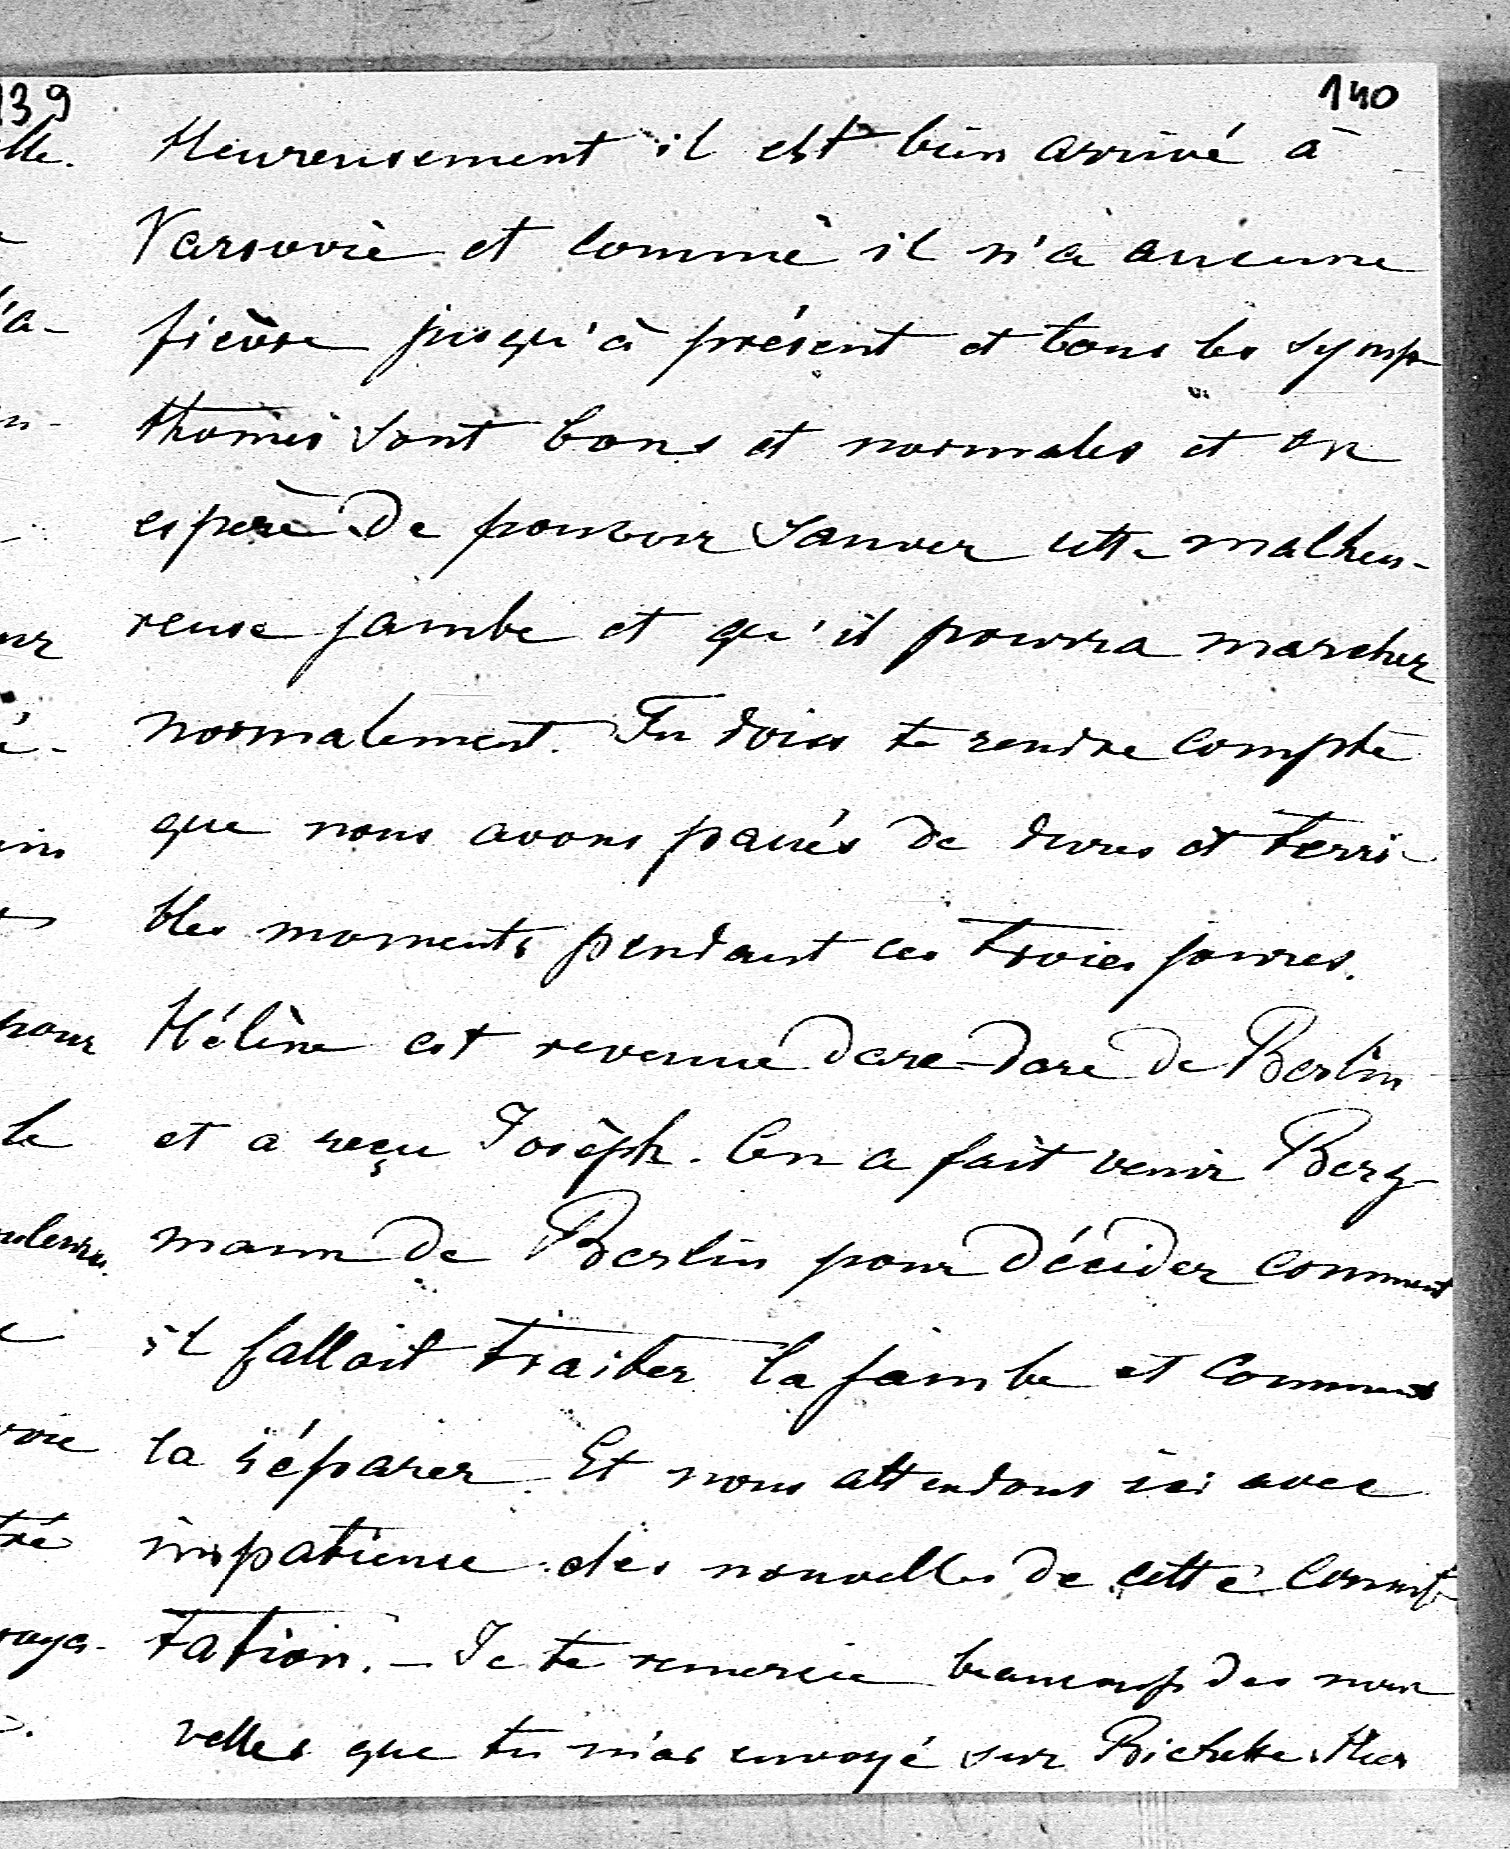 139
140
lle. Heureusement il est bien arrivé à
Varsovie et comme il n'a aucune
'a- fièvre jusqu'à présent et tous les symp-
n- thomes sont bons et normales et on
espère de pouvoir sauver cette malheu-
ur reuse jambe et qu'il pourra marcher
é- normalement. Tu dois te rendre compte
que nous avons passés de dures et terri-
bles moments pendant ces trois jours.
pour Hélène est revenue dare-dare de Berlin
le et a reçu Joseph. On a fait venir Berg-
mann de Berlin pour décider comment
il fallait traiter la jambe et comment
voie la séparer. Et nous attendons ici avec
tré impatience des nouvelles de cette consul-
voya- tation. — Je te remercie beaucoup des nou
velles que tu m'as envoyé sur Richette. Mes